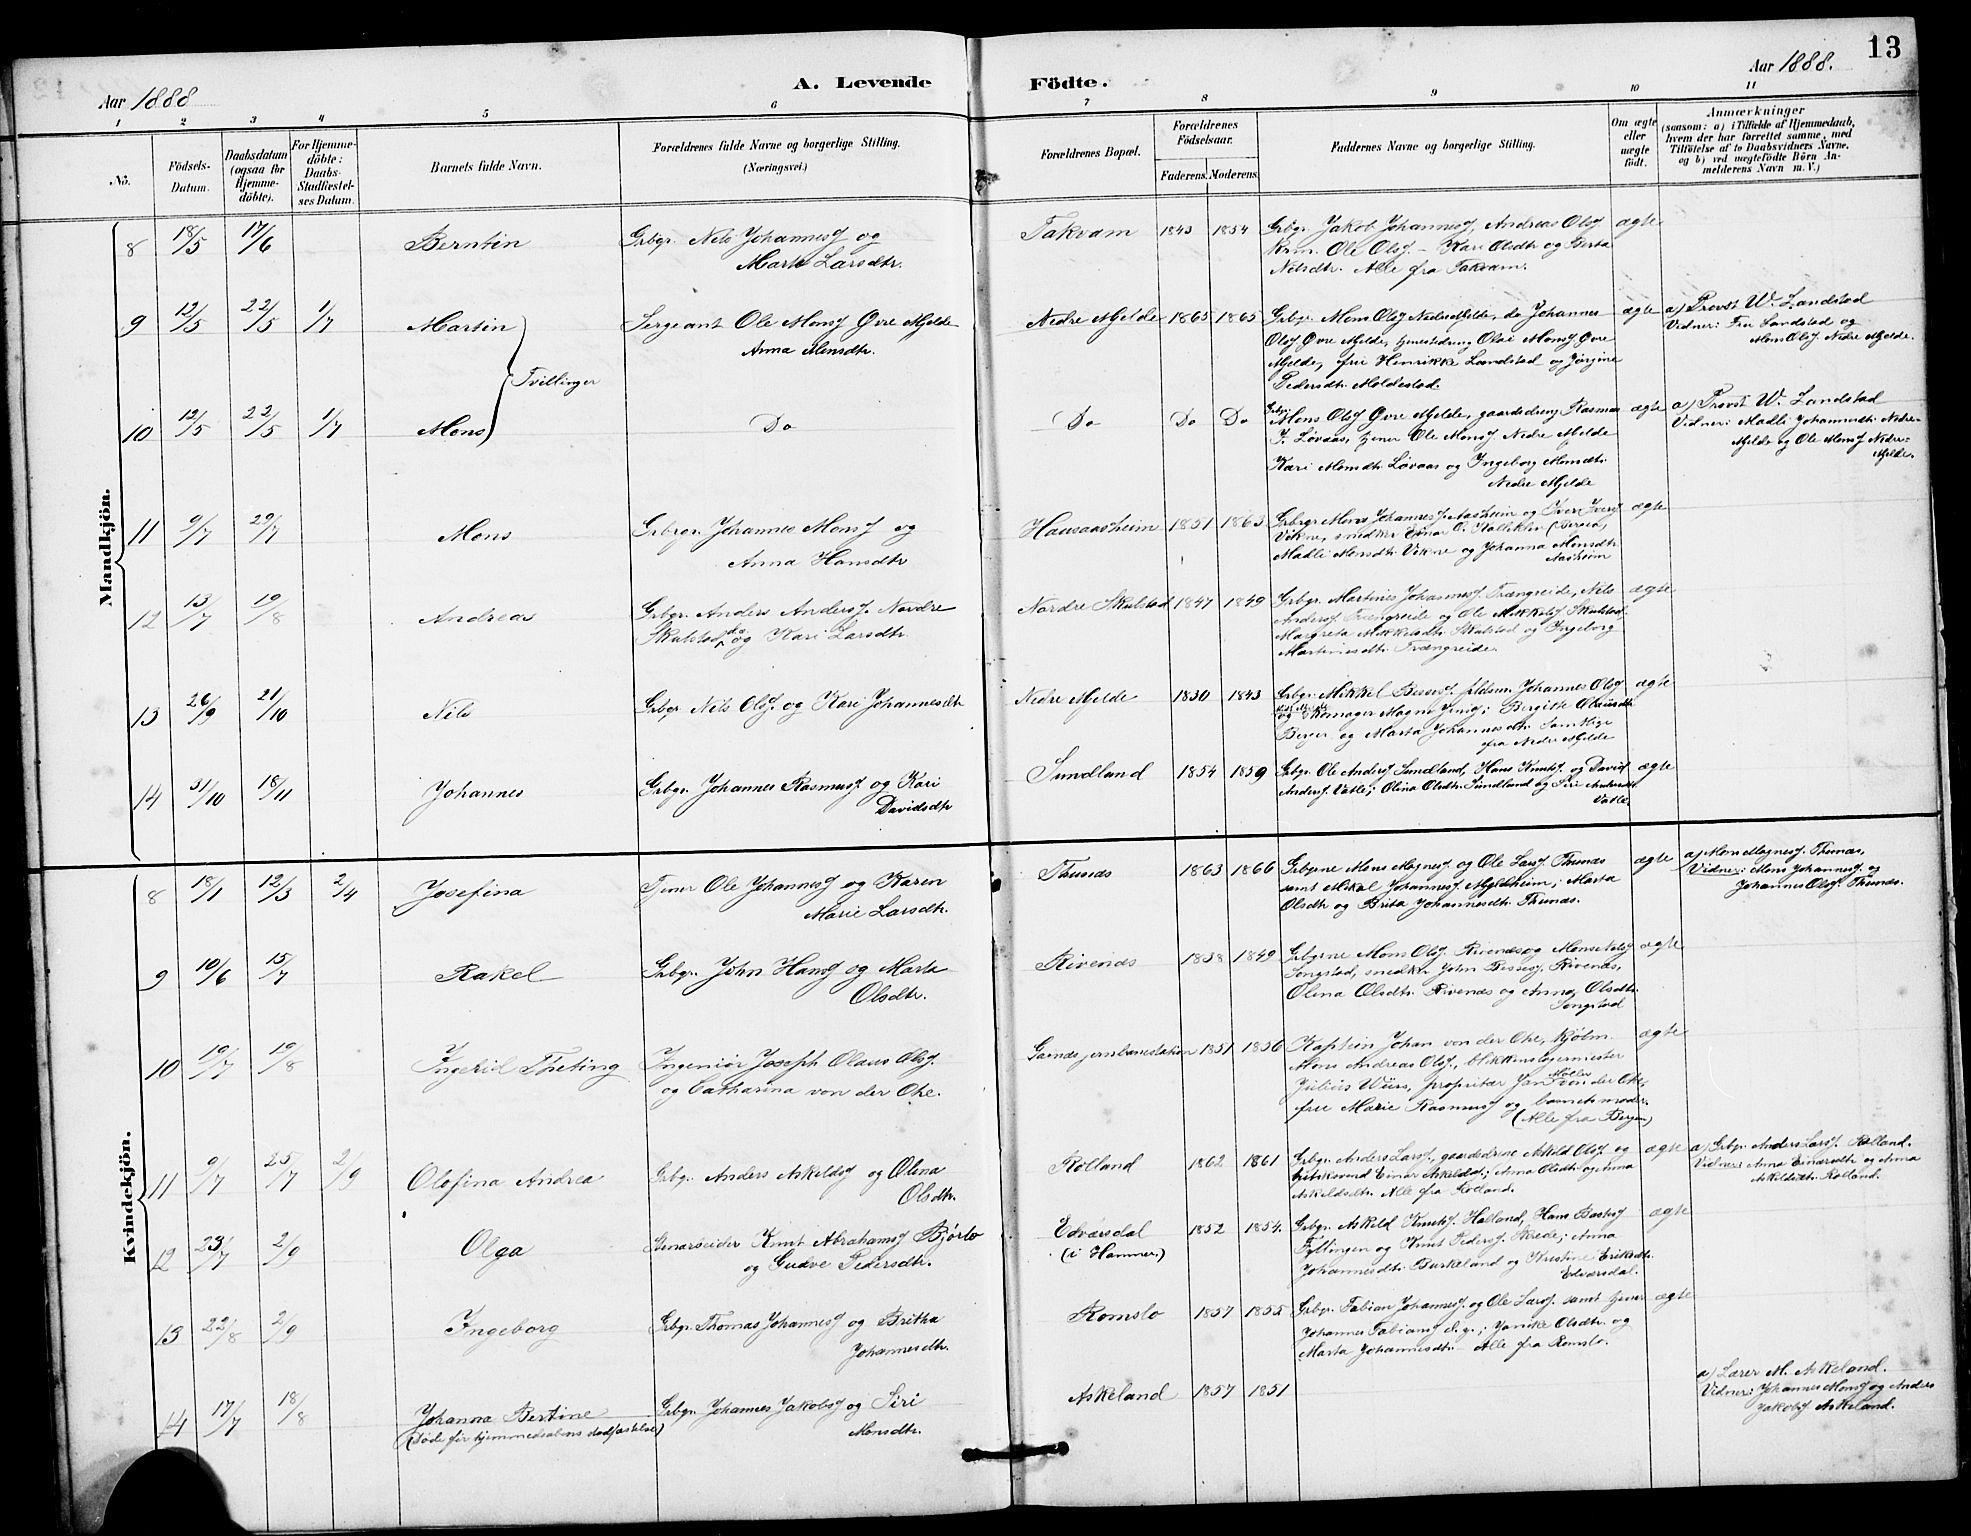 13
Aar 1888
A. Levende
Födte.
Aar 1888.
1 2 3 4 5 6 7 8 9 10 11
No.
Födsels-
Datum.
Daabsdatum
(ogsaa for
Hjemme-
döbte).
For Hjemme-
döbte:
Daabs-
Stadfæstel-
ses Datum.
Barnets fulde Navn.
Forældrenes fulde Navne og borgerlige Stilling.
(Næringsvei.)
Forældrenes Bopæl.
Forældrenes
Födselsaar.
Faderens. Moderens.
Faddernes Navne og borgerlige Stilling.
Om ægte
eller
uægte
født.
Anmærkninger
(saasom: a) i Tilfælde af Hjemmedaab,
hvem der har forrettet samme, med
Tilföielse af to Daabsvidners Navne.
og b) ved uægtefödte Börn An-
melderens Navn m.V.)
Mandkjön.
8 18/5 17/6 Berntin
Grbgr. Nils Johannesf og
Marta Larsdtr.
Takvam 1843 1854
Grbgr. Jakob Johannesf, Andreas Olsf
Krm. Ole Olsf - Kari Olsdtr og Berta
Nilsdtr. Alle fra Takvam.
ægte
9 12/5 22/5 1/7 Martin
Tvillinger
Sergeant Ole Monsf Øvre Mjelde
Anna Monsdtr.
Nedre Mjelde 1865 1865
Grbgr. Mons Olsf Nedre Mjelde, do Johannes
Olsf Øvre Mjelde, tjenestedreng Olai Monsf Øvre
Mjelde, frue Henrikke Landstad og Jørgine
Pedersdtr. Moldestad.
ægte
a) Provst W. Landstad
Vidner: Fru Landstad og
Mons Olsf. Nedre Mjelde.
10 12/5 22/5 1/7 Mons
Do
Do Do Do
Grbgr.
Mons Olsf Øvre Mjelde, gaardsdreng Rasmus
J. Løvaas, tjener Ole Monsf. Nedre Mjelde
Kari Monsdtr. Løvaas og Ingeborg Monsdtr.
Nedre Mjelde
ægte
a) Provst W. Landstad
Vidner: Madli Johannesdtr. Nedre-
Mjelde og Ole Monsf Nedre-
Mjelde.
11 9/7 29/7 Mons
Grbrgr. Johannes Monsf og
Anna Hansdtr
Hausaasheim 1851 1863
Grbrgr Mons Johannesf. Aasheim og Iver Iversf
Vikne, snedker Einar O. Kalleklev (Bergen),
Madli Monsdtr. Vikne og Johanna Monsdtr
Aasheim
ægte
12 13/7 19/8 Andreas
Grbgr. Anders Andersf. Nordre
Skulstad, do og Kari Larsdtr.
Nordre Skulstad 1847 1849
Grbgr. Martines Johannesf. Trængreide, Nils
Andersf Trængreide og Ole Mikkelsf Skulstad,
Margreta Mikkelsdtr. Skulstad og Ingeborg
Martinesdtr. Trængreide.
ægte
13 26/9 21/10 Nils
Grbgr Nils Olsf. og Kari Johannesdtr
Nedre Mjelde 1830 1843
Grbgr. Mikkel Johannes Olsf
og Skomager Magne
Berger og Marta Johannesdtr. Samtlige
fra Nedre Mjelde
ægte
14 31/10 18/11 Johannes
Grbgr. Johannes Rasmusf og Kari
Davidsdtr
Sundland 1854 1859
Grbgr. Ole Andersf Sundland, Hans Knutsf. og David
Andersf Vatle; Olina Olsdtr. Sundland og Siri Andersdtr
Vatle.
ægte
Kvindekjön.
8 18/1 12/3 2/4 Josefina
Tjener Ole Johannesf og Karen
Marie Larsdtr.
Thunæs 1863 1866
Grbgrne Mons Magnesf. og Ole Larsf. Thunæs
samt Mikal Johannesf Mjeldheim; Marta
Olsdtr og Brita Johannesdtr. Thunæs.
ægte
a) Mons Magnesf. Thunæs,
Vidner: Mons Johannesf. og
Johannes Olsf. Thunæs.
9 10/6 15/7 Rakel
Grbgr. John Hansf og Marta
Olsdtr.
Rivenæs 1838 1849
Grbgrne Mons Olsf. Rivenæs og
Songstad, snedker John Rivenæs,
Olina Olsdtr. Rivenæs og Anna Olsdtr.
Songstad
ægte
10 19/7 19/8 Ingerid Theting
Ingeniør Joseph Olaus Olsf.
og Catharina von der Ohe.
Garnæs jernbanestation 1851 1856
Kaptein Johan von der Ohe, Kjølm.
Mons Andreas Olsf., blikkenslagermester
Julius Würs, proprietær Jan Møller von der Ohe,
frue Marie Rasmusf og barnets moder.
(Alle fra Bergen)
ægte
11 9/7 25/7 2/9 Olofina Andrea
Grbgr. Anders Askeldsf og Olina
Olsdtr.
Rolland 1862 1861
Grbgr. Anders Larsf., gaardsdrene Askild Olsf og
Einar Askeldsf; Anna Olsdtr og Anna
Askeldsdtr. Alle fra Rolland.
ægte
a) Grbgr. Anders Larsf. Rolland.
Vidner: Anna Einarsdtr og Anna
Askeldsdtr. Rolland.
12 23/7 2/9 Olga
Stenarbeider Knut Abrahamsf Bjørlo
og Gudve Pedersdtr.
Edvarsdal
(i Hammer.)
1852 1854.
Grbgr. Askeld Knutsf. Halland, Hans
Fyllingen og Knut Pedersf. Skrede; Anna
Johannesdtr. Burkeland og Kristine Eriksdtr.
Edvarsdal.
ægte
13 22/8 2/9 Ingeborg
Grbgr. Thomas Johannesf og Britha
Johannesdtr.
Romslo 1857 1855
Grbgr. Fabian Johannesf. og Ole Larsf. samt tjener
Johannes Fabiansf d.y.; Janike Olsdtr. og
Marta Johannesdtr. Alle fra Romslo.
ægte
14 17/7 18/8 Johanna Bertine
(Døde før hjemmedaabens stadfæstelse)
Grbgr. Johannes Jakobsf og Siri
Monsdtr.
Askeland 1857 1851
a) Lærer M. Askeland.
Vidner: Johannes Monsf og Anders
Jakobsf Askeland.